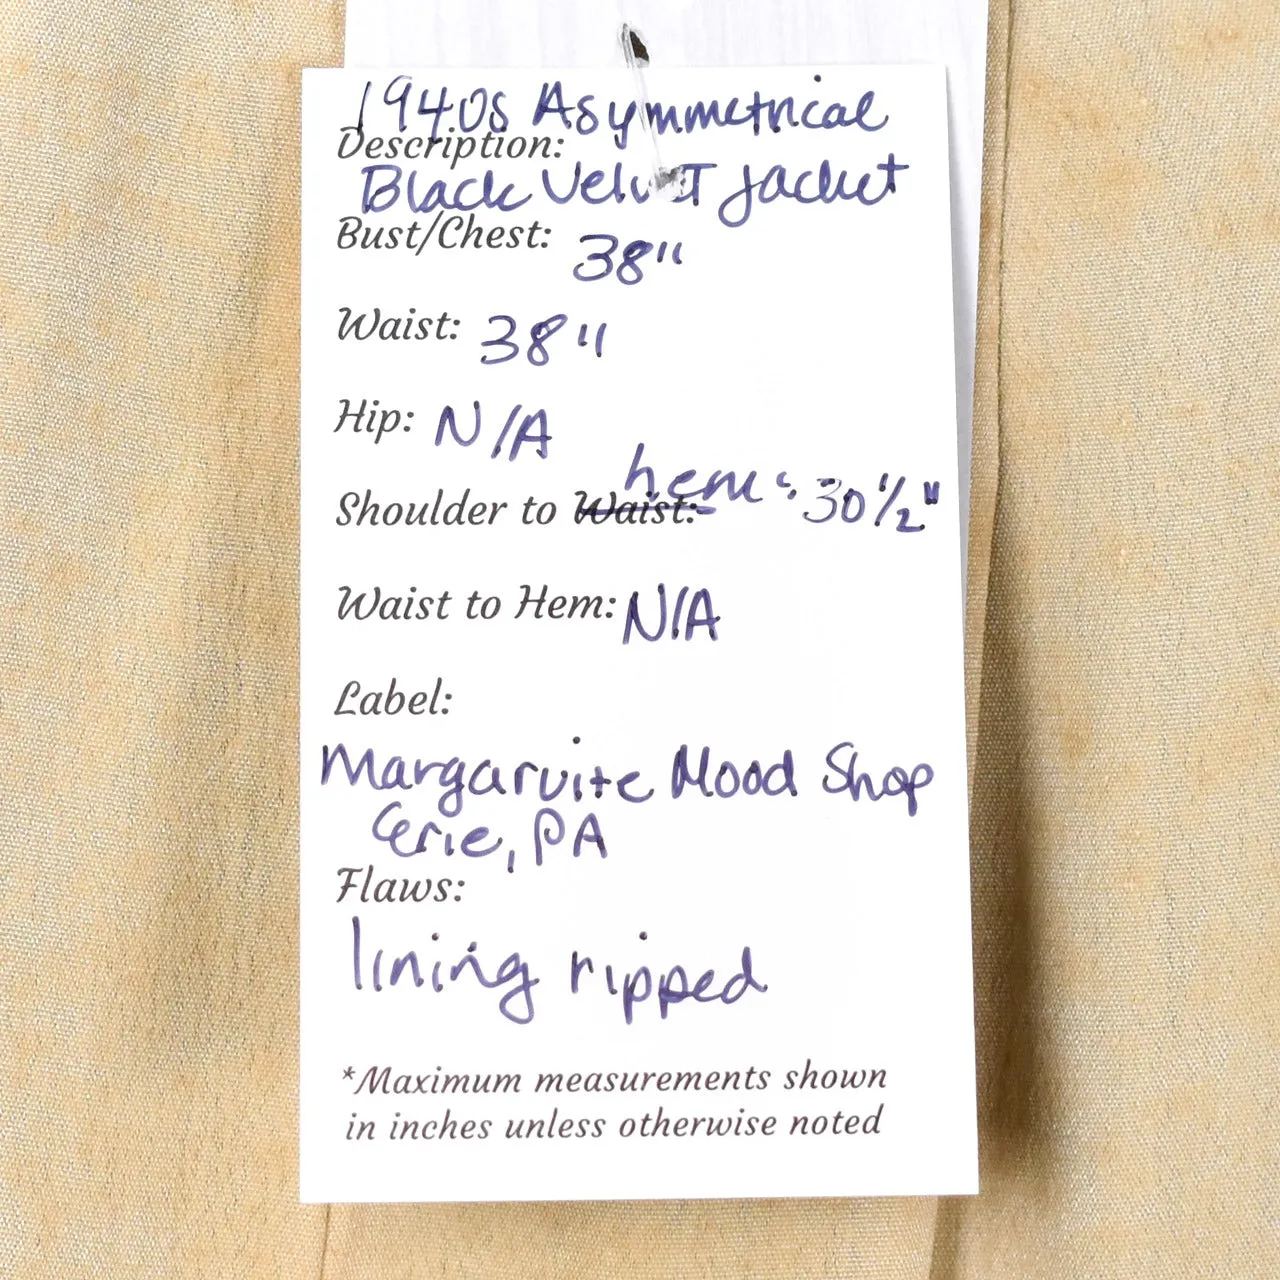 1940s Asymmetrical
Description:
Black Velvet Jacket
Bust/Chest: 38"
Waist: 38"
Hip: N/A
Shoulder to Waist: hem: 30 1/2"
Waist to Hem: N/A
Label:
Margaruite Mood Shop
Erie, PA
Flaws:
lining ripped
*Maximum measurements shown
in inches unless otherwise noted